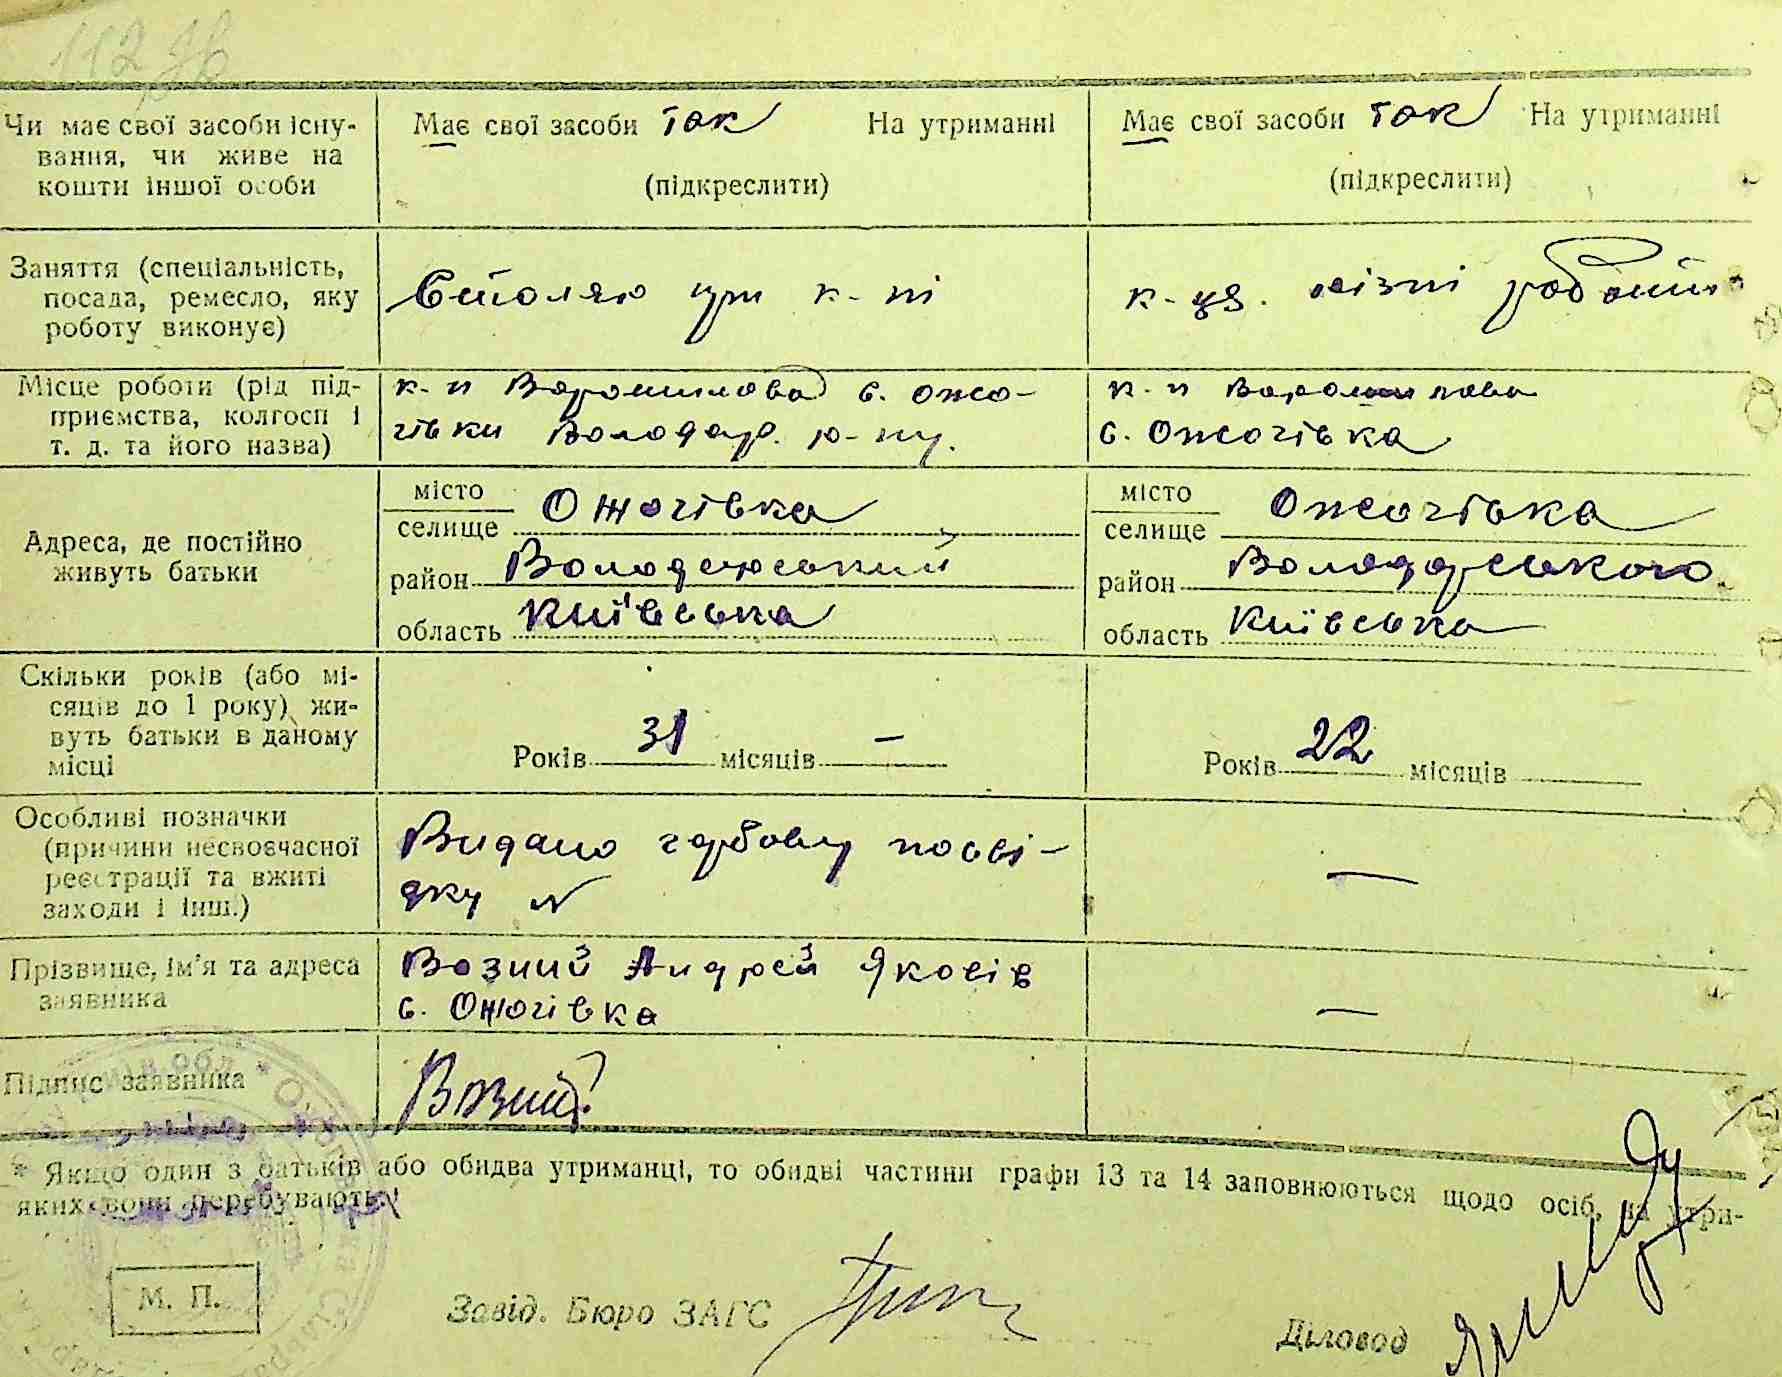 112
Чи має свої засоби існу-
вання, чи живе на
кошти іншої особи
Має свої засоби так На утриманні
(підкреслити)
Має свої засоби так На утриманні
(підкреслити)
Заняття (спеціальність,
посада, ремесло, яку
роботу виконує)
Столяр при к-пі
к-ця. різні роботи
Місце роботи (рід під-
приємства, колгосп і
т. д. та його назва)
к-п Ворошилова с. Ожо-
гівки Володар. р-ну.
к-п Ворошилова
с. Ожогівка
Адреса, де постійно
живуть батьки
місто
селище Ожогівка
район Володарський
область Київська
місто
селище Ожогівка
район Володарського
область Київська
Скільки років (або мі-
сяців до 1 року) жи-
вуть батьки в даному
місці
Років 31 місяців —
Років 22 місяців
Особливі позначки
(причини несвоєчасної
реєстрації та вжиті
заходи і інш.)
Видано гербову посві-
дку №
—
Прізвище, ім'я та адреса
заявника
Возний Андрей Яковів
с. Ожогівка
—
Підпис заявника
Возний
* Якщо один з батьків або обидва утриманці, то обидві частини графи 13 та 14 заповнюються щодо осіб, на утри-
яких вони перебувають.
М. П.
Завід. Бюро ЗАГС
Діловод